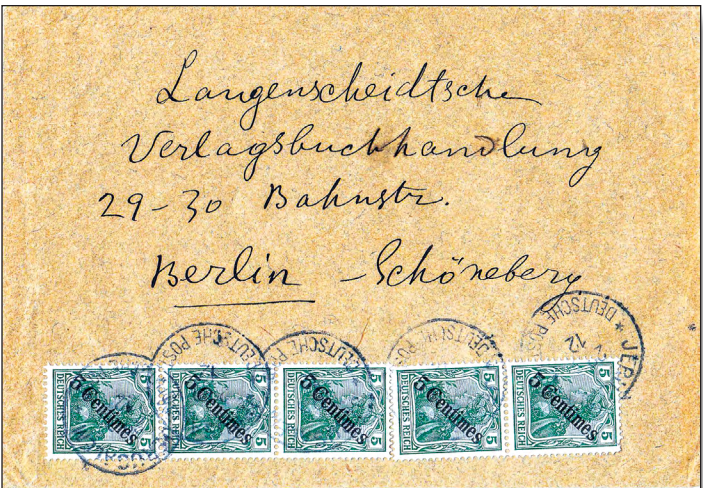 Langenscheidtsche
Verlagsbuchhandlung
29-30 Bahnstr.
Berlin - Schöneberg
DEUTSCHE POST
DEUTSCHE POS
DEUTSCHE POS
DEUTSCHE POS
* DEUTSCHE POS
12
JER
JERUSAL
DEUTSCHES REICH 5 Centimes 5
DEUTSCHES REICH 5 Centimes 5
DEUTSCHES REICH 5 Centimes 5
DEUTSCHES REICH 5 Centimes 5
DEUTSCHES REICH 5 Centimes 5